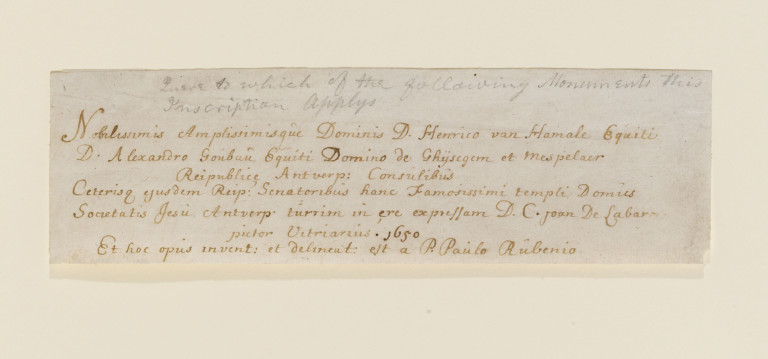 Quere to which of the following Monuments this
Inscription Applys
Nobilissimis Amplissimisque Dominis D. Henrico van Hamale Equiti
D. Alexandro Goubau Equiti Domino de Ghijsegem et Mespelaer
Reipublicę Antverp: Consulibus
Ceterisq ejusdem Reip: Senatoribus hanc Famosissimi templi Domus
Societatis Jesu Antverp turrim in ęre expressam D. C. Joan De Labar
pictor Vitriarius. 1650
Et hoc opus invent: et delineat: est a P. Paulo Rubenio